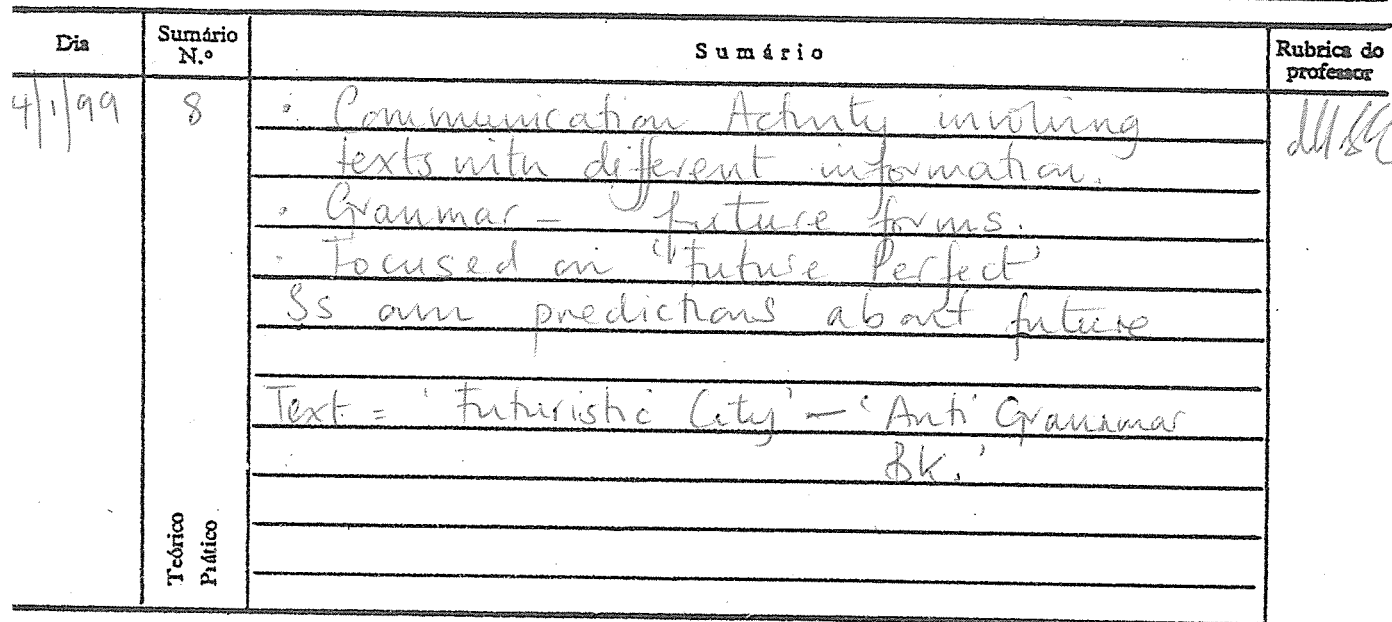 Dia Sumário N.º Sumário Rubrica do professor
4/1/99 8 · Communication Activity involving
texts with different information.
· Grammar - future forms.
· Focused on 'Future Perfect'
Ss own predictions about future
Text = 'Futuristic City' - 'Anti Grammar
Bk.'
Teórico
Prático